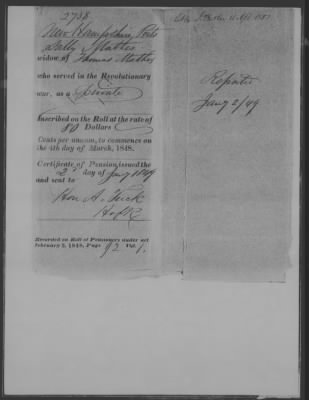 2738
New Hampshire, Ports
Sally Mathes
widow of Thomas Mathes
who served in the Revolutionary
war, as a Private
Inscribed on the Roll at the rate of
80 Dollars
Cents per annum, to commence on
the 4th day of March, 1848.
Certificate of Pension issued the
2d day of Jany 1849
and sent to
Hon A. Tuck
H of R
Recorded on Roll of Pensioners under act
February 2, 1848, Page 92 Vol. 1.
Jany 2/49